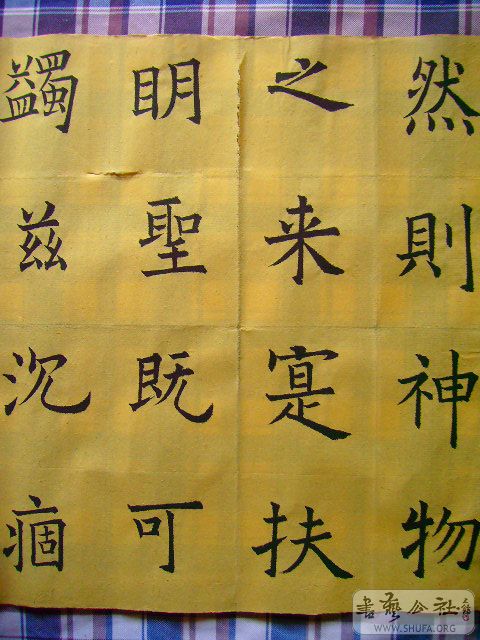 然則神物
之来寔扶
明聖既可
蠲兹沉痼
書藝公社
WWW.SHUFA.ORG